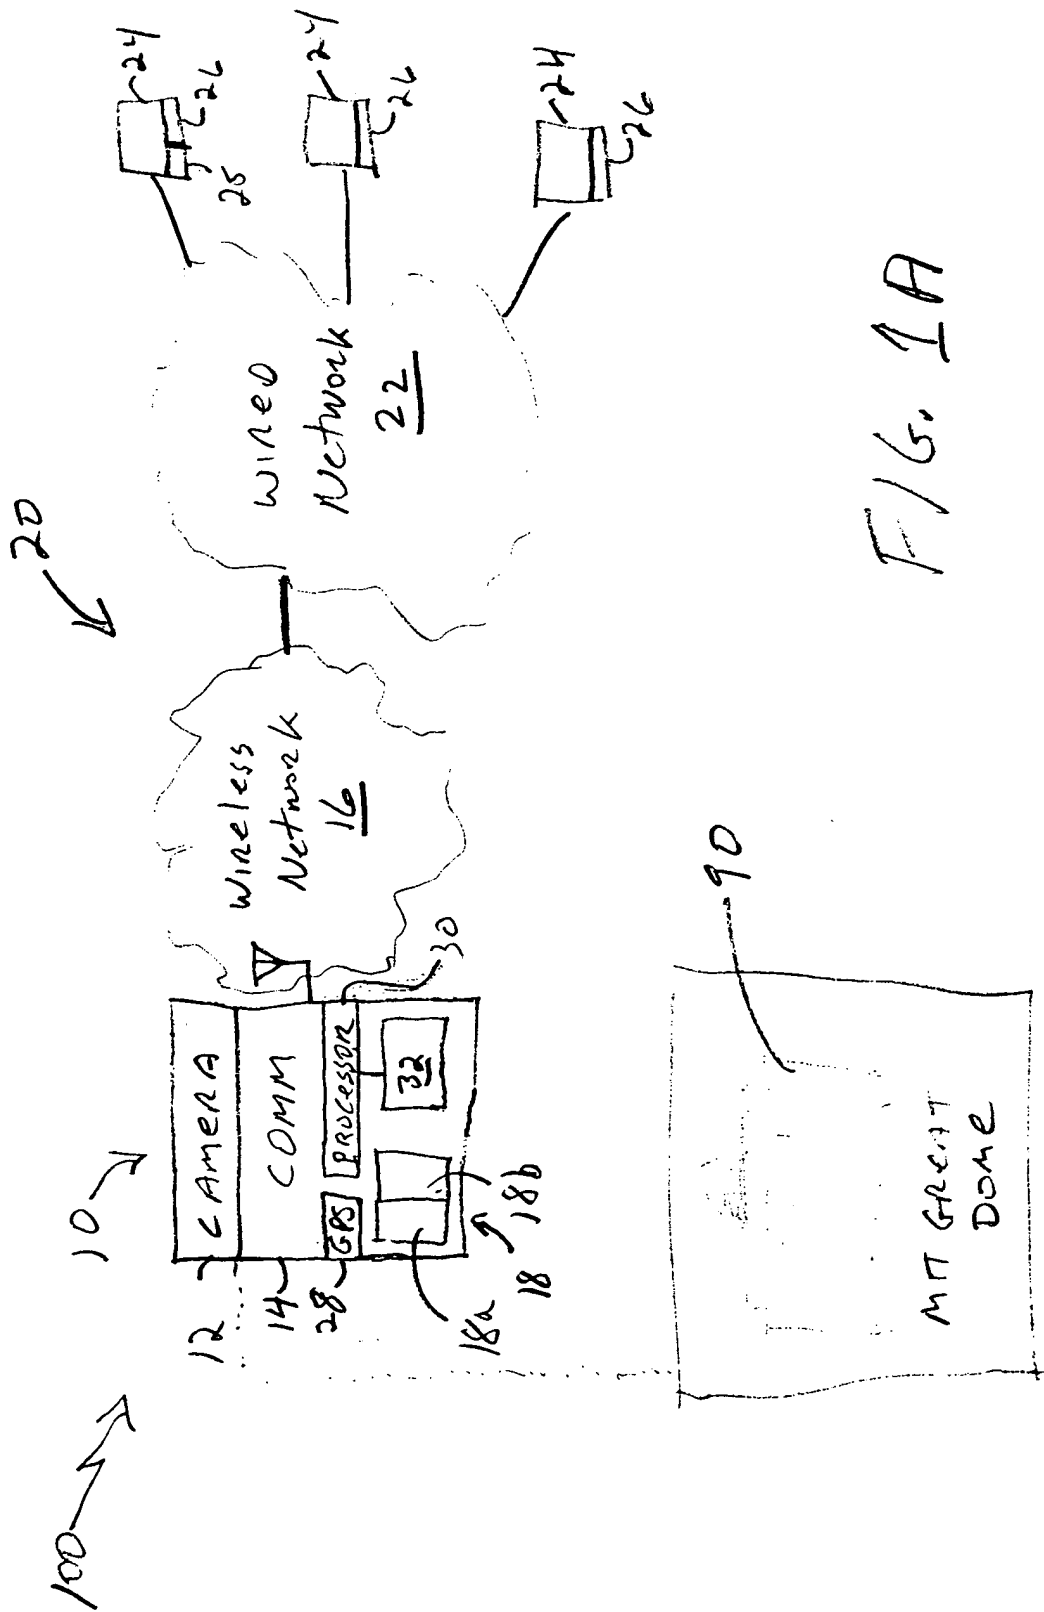 100
10
20
12
CAMERA
14
COMM
28
GPS
PROCESSOR
30
32
18a
18
18b
Wireless
Network
16
Wired
Network
22
24
25
26
24
26
24
26
90
MIT GREAT
DOME
FIG. 1A